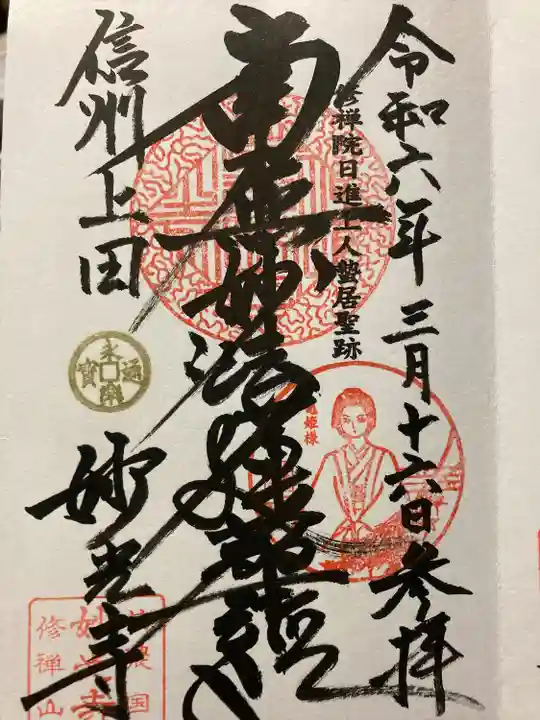 令和六年三月十六日参拝
修禅院日進上人蟄居聖跡
南無妙法蓮華経
信州上田
妙光寺
永楽通寳
姫様
信濃国
妙光寺
修禅山